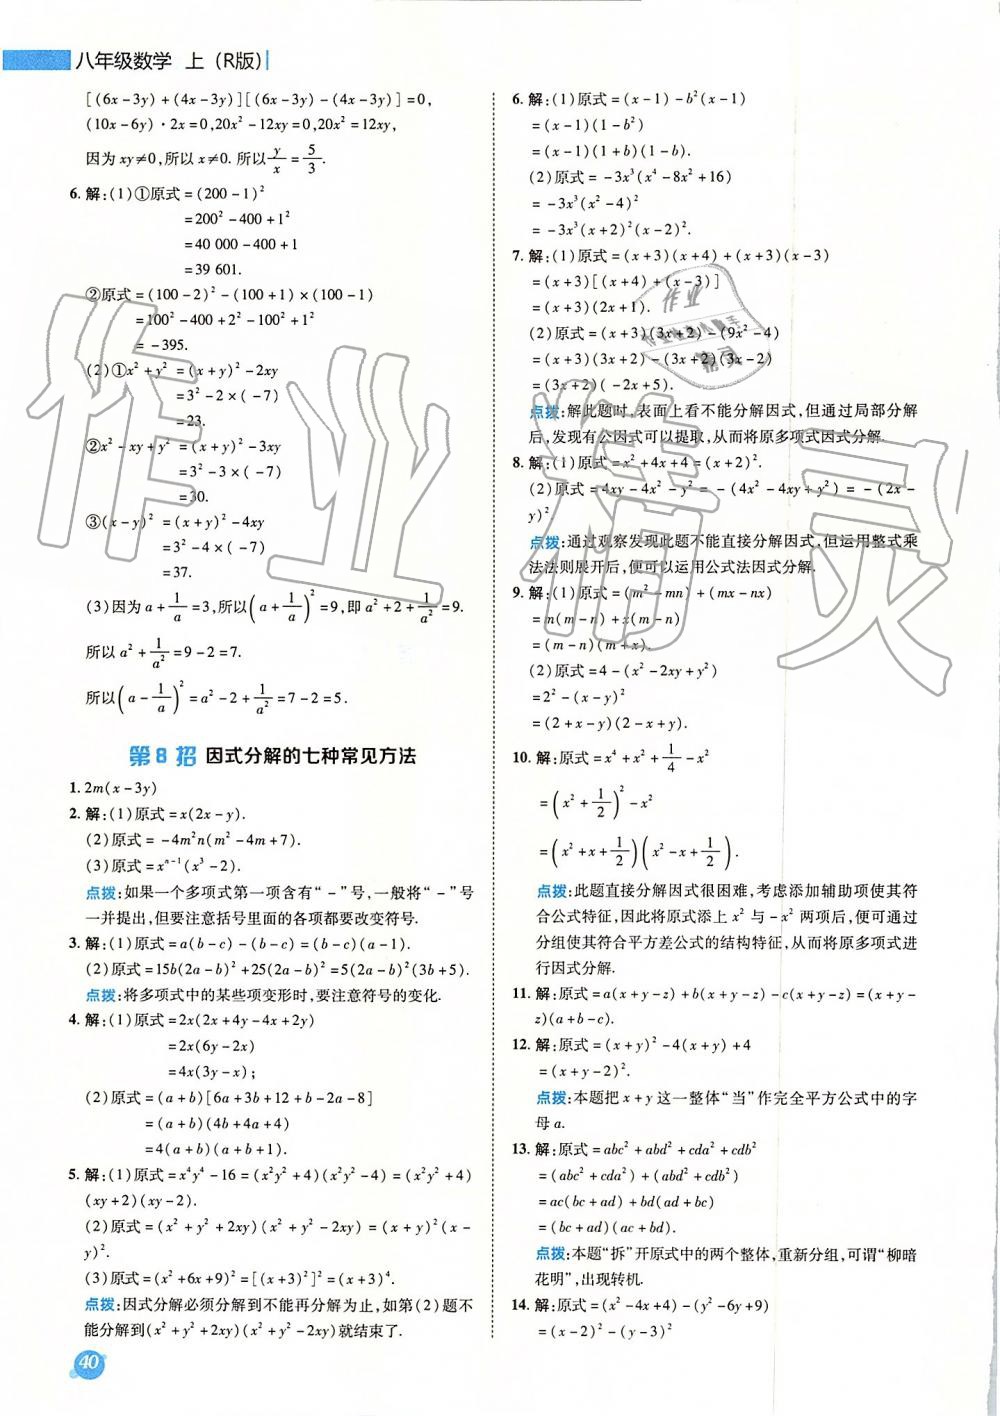 八年级数学 上（R版）
[(6x-3y)+(4x-3y)][(6x-3y)-(4x-3y)]=0,
(10x-6y)·2x=0,20x²-12xy=0,20x²=12xy,
因为xy≠0,所以x≠0.所以y/x=5/3.
6.解:(1)①原式=(200-1)²
=200²-400+1²
=40 000-400+1
=39 601.
②原式=(100-2)²-(100+1)×(100-1)
=100²-400+2²-100²+1²
=-395.
(2)①x²+y²=(x+y)²-2xy
=3²-2×(-7)
=23.
②x²-xy+y²=(x+y)²-3xy
=3²-3×(-7)
=30.
③(x-y)²=(x+y)²-4xy
=3²-4×(-7)
=37.
(3)因为a+1/a=3,所以(a+1/a)²=9,即a²+2+1/a²=9.
所以a²+1/a²=9-2=7.
所以(a-1/a)²=a²-2+1/a²=7-2=5.
第8招 因式分解的七种常见方法
1.2m(x-3y)
2.解:(1)原式=x(2x-y).
(2)原式=-4m²n(m²-4m+7).
(3)原式=xⁿ⁻¹(x³-2).
点拨:如果一个多项式第一项含有“-”号,一般将“-”号
一并提出,但要注意括号里面的各项都要改变符号.
3.解:(1)原式=a(b-c)-(b-c)=(b-c)(a-1).
(2)原式=15b(2a-b)²+25(2a-b)²=5(2a-b)²(3b+5).
点拨:将多项式中的某些项变形时,要注意符号的变化.
4.解:(1)原式=2x(2x+4y-4x+2y)
=2x(6y-2x)
=4x(3y-x);
(2)原式=(a+b)[6a+3b+12+b-2a-8]
=(a+b)(4b+4a+4)
=4(a+b)(a+b+1).
5.解:(1)原式=x⁴y⁴-16=(x²y²+4)(x²y²-4)=(x²y²+4)
(xy+2)(xy-2).
(2)原式=(x²+y²+2xy)(x²+y²-2xy)=(x+y)²(x-
y)².
(3)原式=(x²+6x+9)²=[(x+3)²]²=(x+3)⁴.
点拨:因式分解必须分解到不能再分解为止,如第(2)题不
能分解到(x²+y²+2xy)(x²+y²-2xy)就结束了.
40
6.解:(1)原式=(x-1)-b²(x-1)
=(x-1)(1-b²)
=(x-1)(1+b)(1-b).
(2)原式=-3x³(x⁴-8x²+16)
=-3x³(x²-4)²
=-3x³(x+2)²(x-2)².
7.解:(1)原式=(x+3)(x+4)+(x+3)(x-3)
=(x+3)[(x+4)+(x-3)]
=(x+3)(2x+1).
(2)原式=(x+3)(3x+2)-(9x²-4)
=(x+3)(3x+2)-(3x+2)(3x-2)
=(3x+2)(-2x+5).
点拨:解此题时,表面上看不能分解因式,但通过局部分解
后,发现有公因式可以提取,从而将原多项式因式分解.
8.解:(1)原式=x²+4x+4=(x+2)².
(2)原式=4xy-4x²-y²=-(4x²-4xy+y²)=-(2x-
y)²
点拨:通过观察发现此题不能直接分解因式,但运用整式乘
法法则展开后,便可以运用公式法因式分解.
9.解:(1)原式=(m²-mn)+(mx-nx)
=m(m-n)+x(m-n)
=(m-n)(m+x).
(2)原式=4-(x²-2xy+y²)
=2²-(x-y)²
=(2+x-y)(2-x+y).
10.解:原式=x⁴+x²+1/4-x²
=(x²+1/2)²-x²
=(x²+x+1/2)(x²-x+1/2).
点拨:此题直接分解因式很困难,考虑添加辅助项使其符
合公式特征,因此将原式添上x²与-x²两项后,便可通过
分组使其符合平方差公式的结构特征,从而将原多项式进
行因式分解.
11.解:原式=a(x+y-z)+b(x+y-z)-c(x+y-z)=(x+y-
z)(a+b-c).
12.解:原式=(x+y)²-4(x+y)+4
=(x+y-2)².
点拨:本题把x+y这一整体“当”作完全平方公式中的字
母a.
13.解:原式=abc²+abd²+cda²+cdb²
=(abc²+cda²)+(abd²+cdb²)
=ac(bc+ad)+bd(ad+bc)
=(bc+ad)(ac+bd).
点拨:本题“拆”开原式中的两个整体,重新分组,可谓“柳暗
花明”,出现转机.
14.解:原式=(x²-4x+4)-(y²-6y+9)
=(x-2)²-(y-3)²
作业精灵
作业